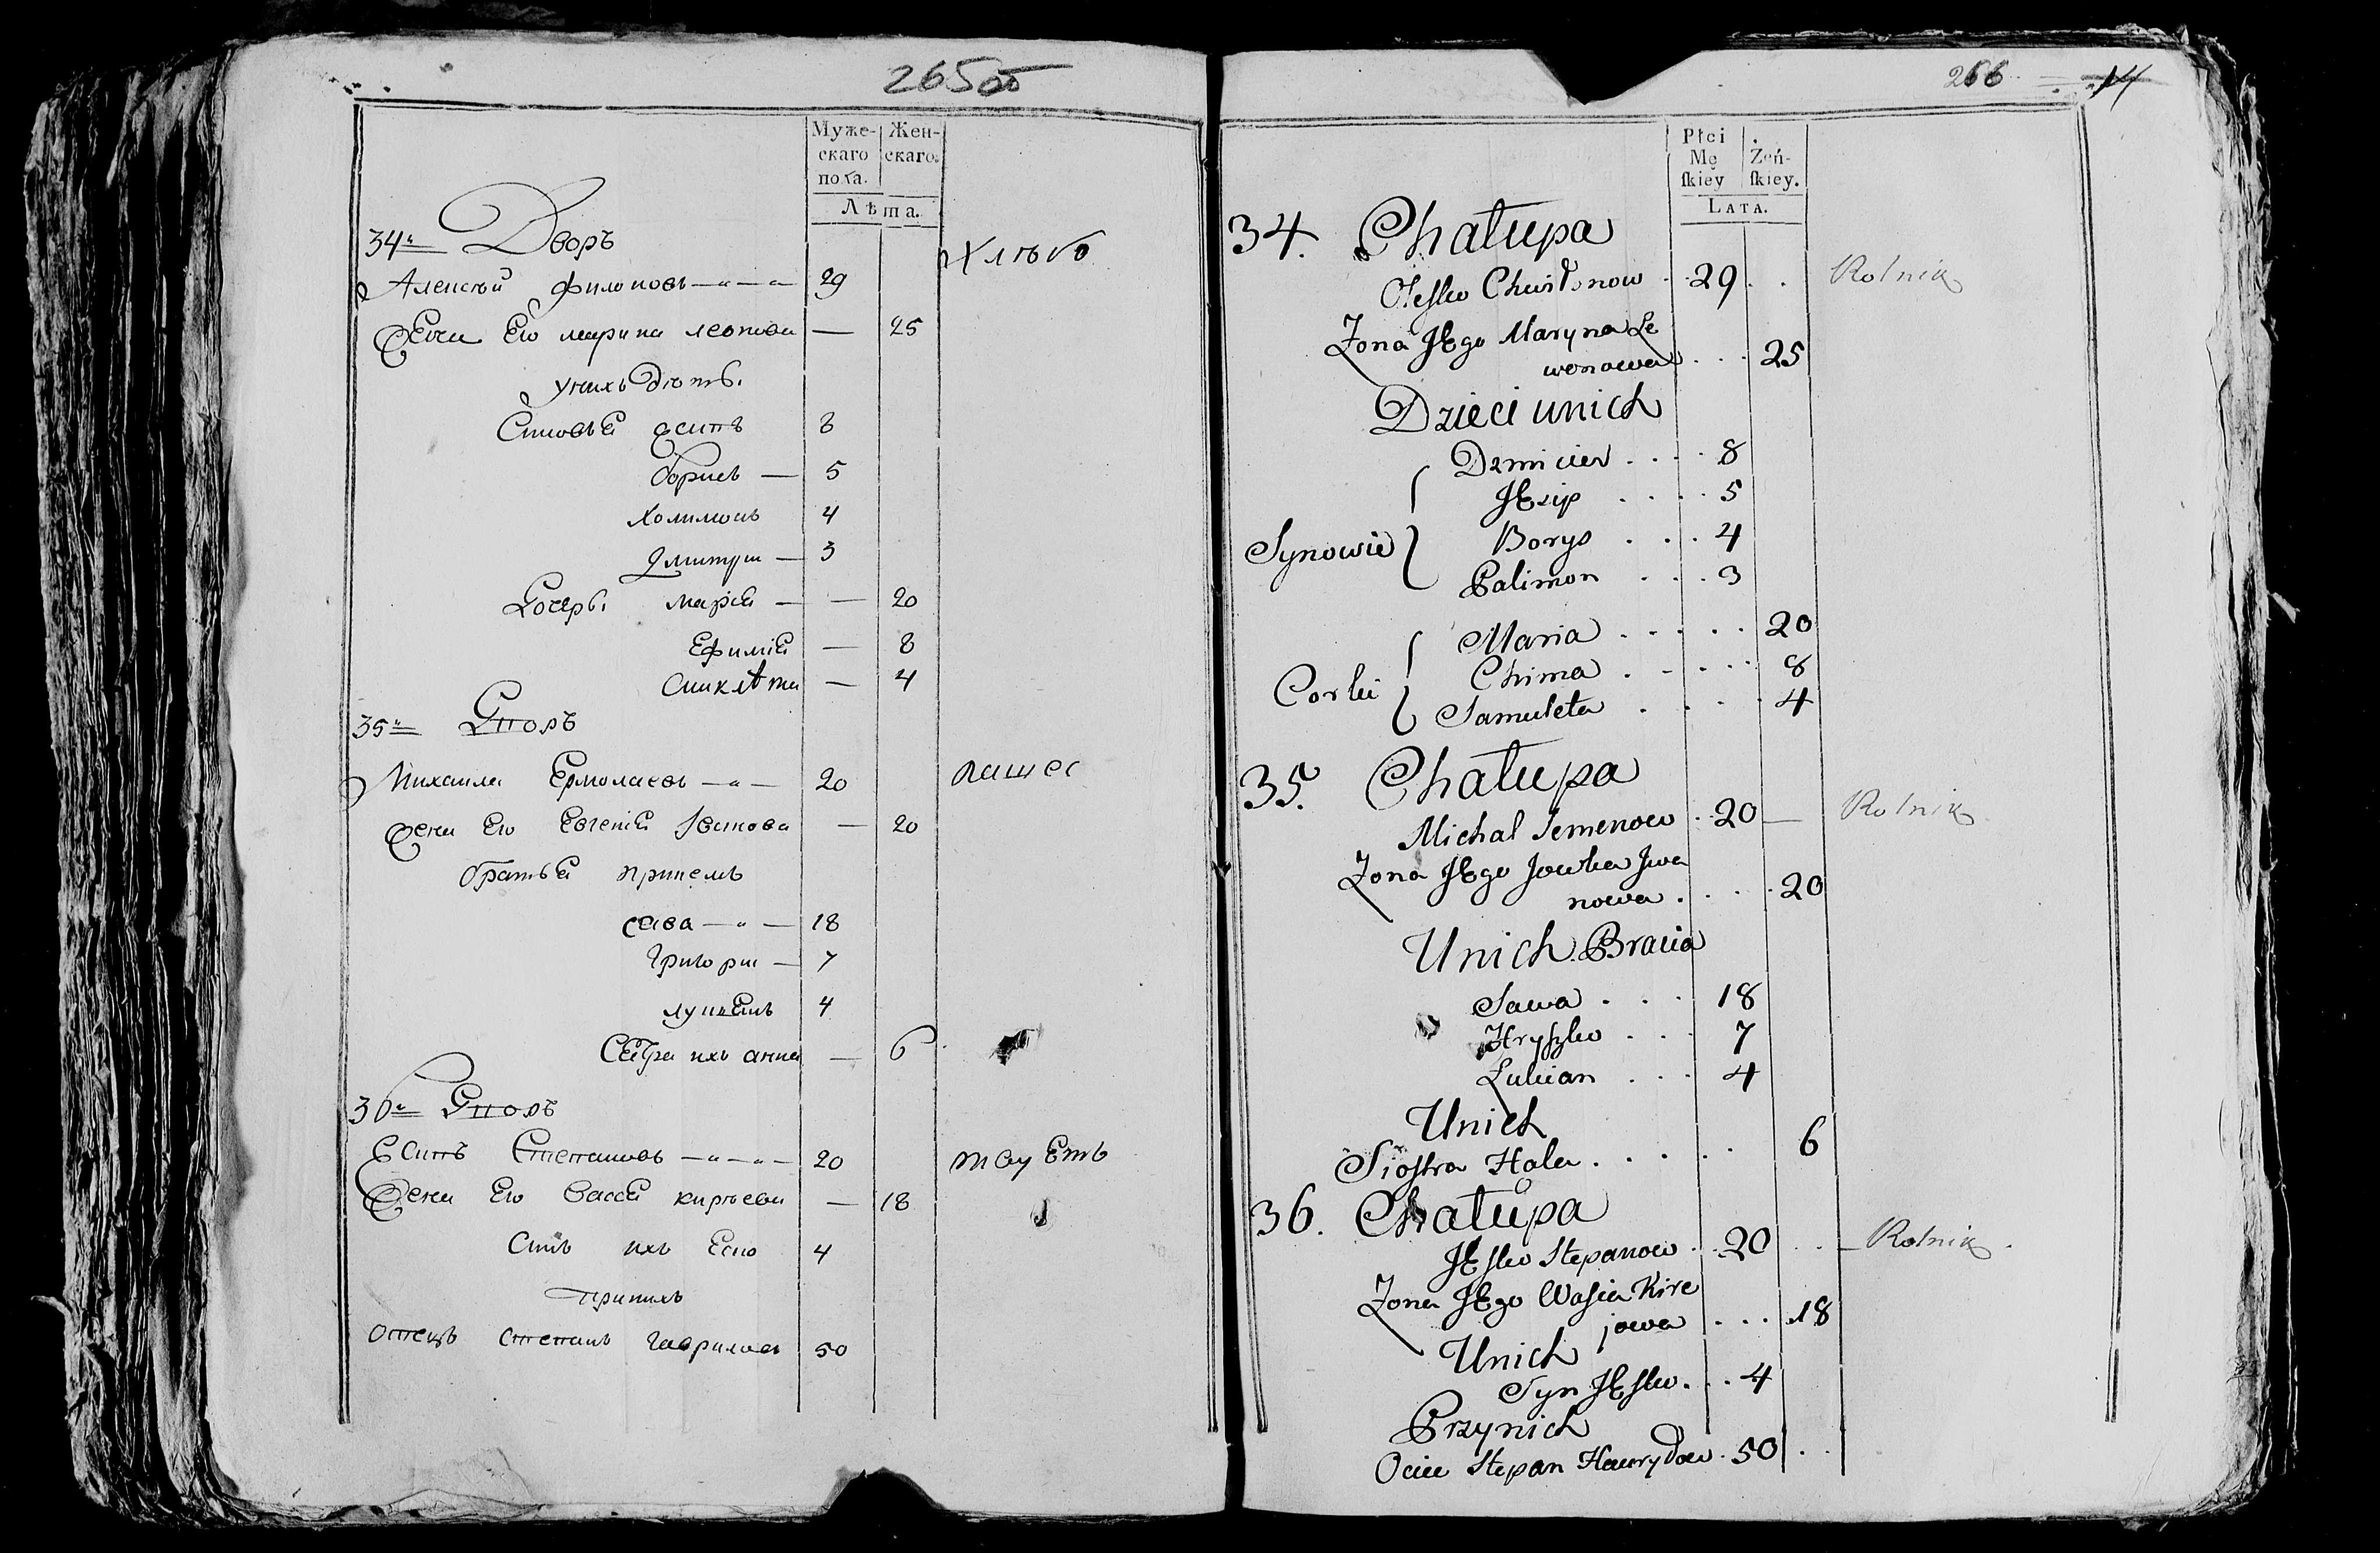 265 об
Муже-
скаго
пола.
Жен-
скаго.
Лѣта.
34й Дворъ
Алексѣй Филоновъ 29
Хлѣбо
Жена Его марина леонова — 25
У нихъ Дѣти
Сыновья есипъ 8
борисъ — 5
Халимонъ 4
Дмитри — 3
Дочери мария — — 20
Ефимия — 8
35й Дворъ
Михаила Ермолаевъ 20
пашес
Жена Его Евгения Иванова — 20
братья при немъ
сава 18
Григори — 7
лукьянъ 4
Сестра ихъ анна — 6
36й Дворъ
Есипъ Степановъ 20
тъ
Жена Его Васса киръева — 18
Сынъ ихъ Есип 4
при нихъ
Отецъ степанъ гавриловъ 50
266 14
Płci
Mę
skiey
Żeń-
skiey.
LATA.
34. Chałupa
Olesko Chwiłonow 29
Rolnik
Zona JEgo Maryna Le
wonowa 25
Dzieci unich
Dzmicier 8
JEzip 5
Synowie Borys 4
Palimon 3
Maria 20
Corki Chima 8
Samuleta 4
35. Chałupa
Michał Jemenow 20 —
Rolnik
Zona JEgo Jowka Jwa
nowa 20
Unich Bracia
Sawa 18
Hryszko 7
Łukian 4
Unich
Siostra Hala 6
36. Chałupa
JEsko Stepanow 20
Rolnik
Zona JEgo Wasia Kire
jowa 18
Unich
Syn JEsko 4
Przynich
Ociec Stepan Hawryłow 50